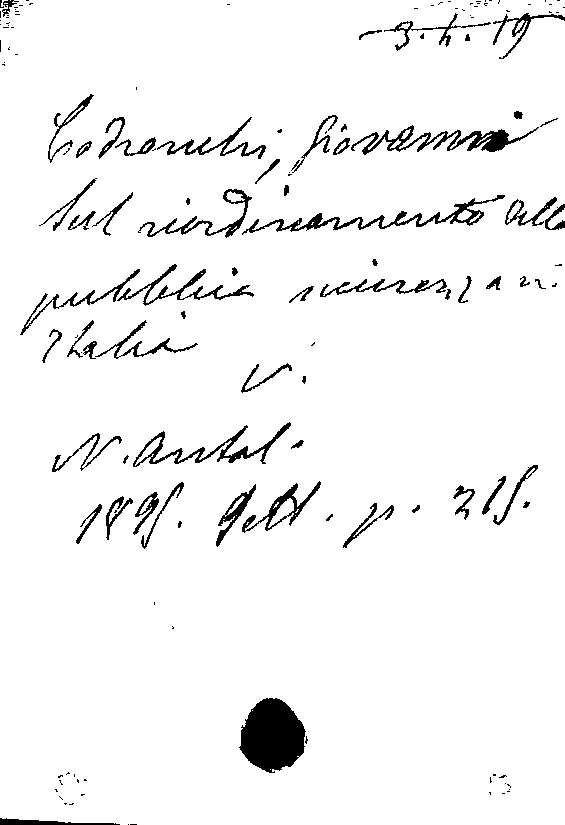 3.4.19
Codronchi, Giovanni
Sul riordinamento della
pubblica sicurezza in
Italia
V.
N. Antol.
1895. Sett. p. 215.